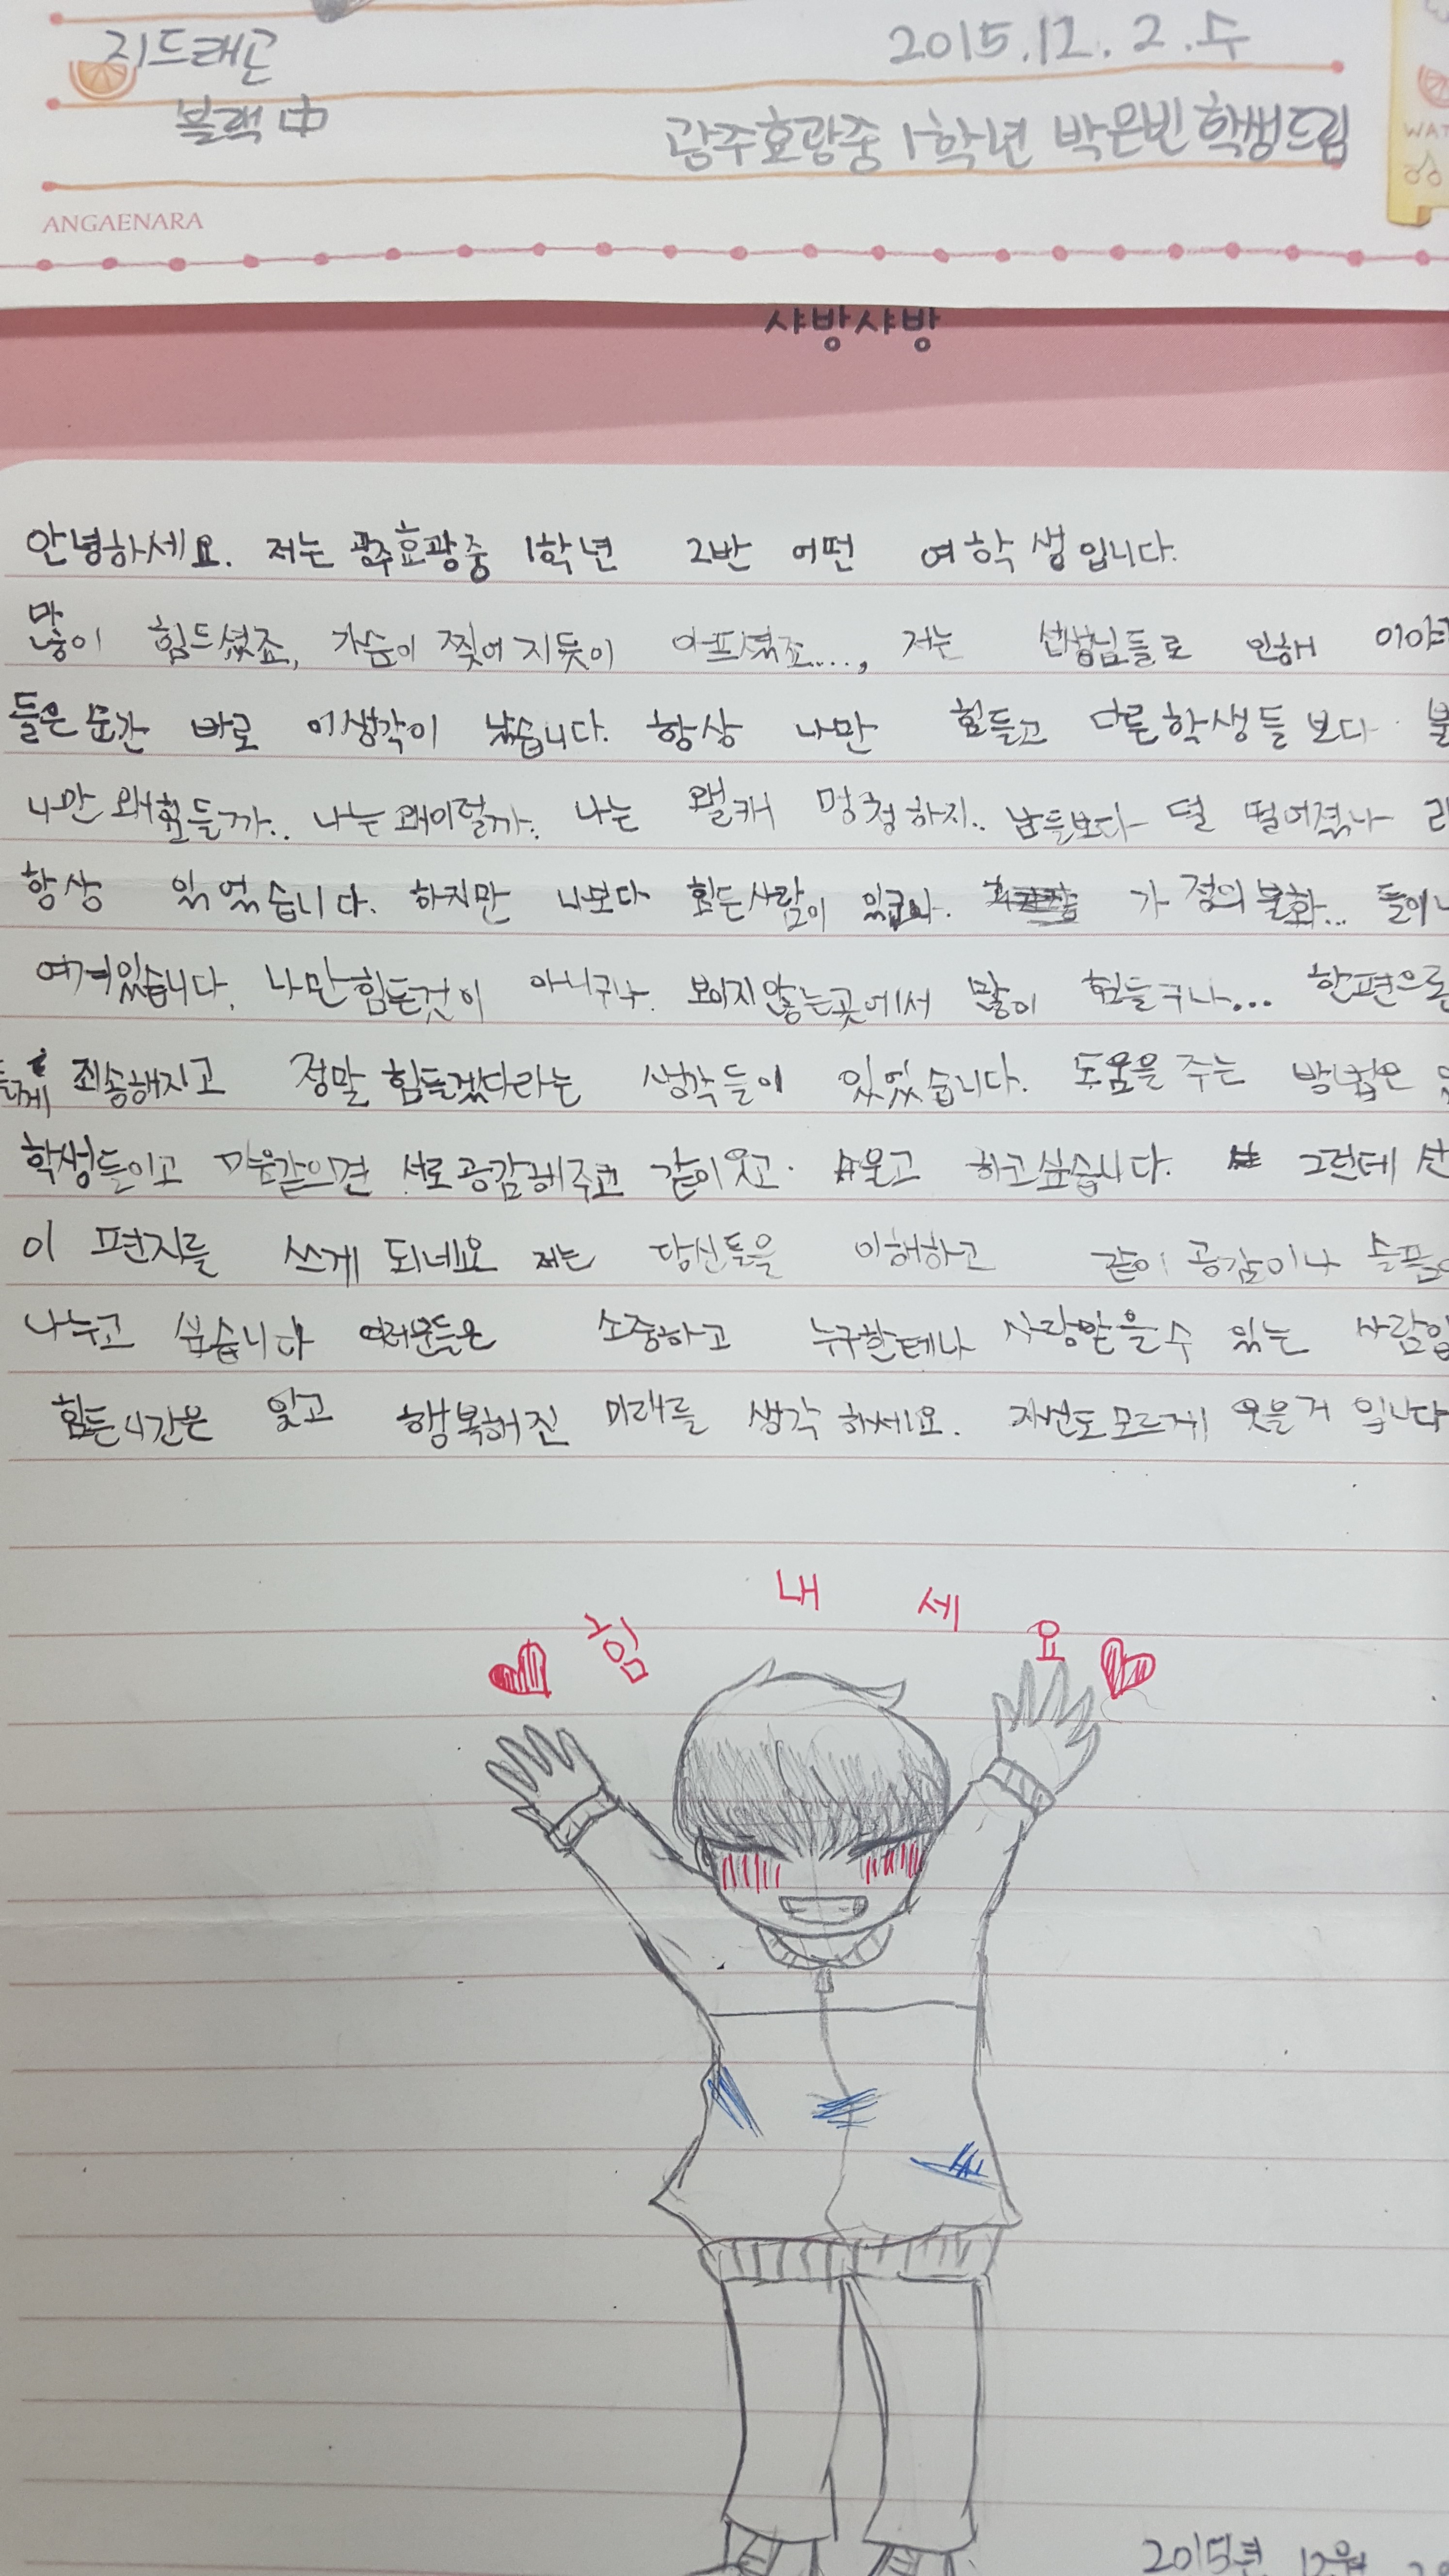 지드래곤 2015.12.2.수
블랙 中 광주효광중 1학년 박은빈 학생드림
WAT
ANGAENARA
샤방샤방
안녕하세요. 저는 광주효광중 1학년 2반 어떤 여학생입니다.
많이 힘드셨죠, 가슴이 찢어지듯이 아프셨죠...., 저는 선생님들로 인해 이야
들은순간 바로 이생각이 났습니다. 항상 나만 힘들고 다른학생들 보다 불
나만 왜힘들까.. 나는 왜이럴까. 나는 멍청하지.. 남들보다 덜 떨어졌나 라
항상 있었습니다. 하지만 나보다 힘든사람이 있구나. 가정의 불화... 들이
여겨있습니다. 나만힘든것이 아니구나. 보이지않는곳에서 많이 힘들구나... 한편으론
죄송해지고 정말 힘들겠다라는 생각들이 있었습니다. 도움을 주는 방법은
학생들이고 마음같으면 서로공감해주고 같이웃고. 울고 하고싶습니다. 그런데
이 편지를 쓰게 되네요 저는 당신들을 이해하고 같이 공감이나 슬픔
나누고 싶습니다 여러분들은 소중하고 누구한테나 사랑받을수 있는 사람입
힘든시간은 잊고 행복해진 미래를 생각 하세요. 자신도모르게 웃을거 입니다
힘내세요
2015년 12월